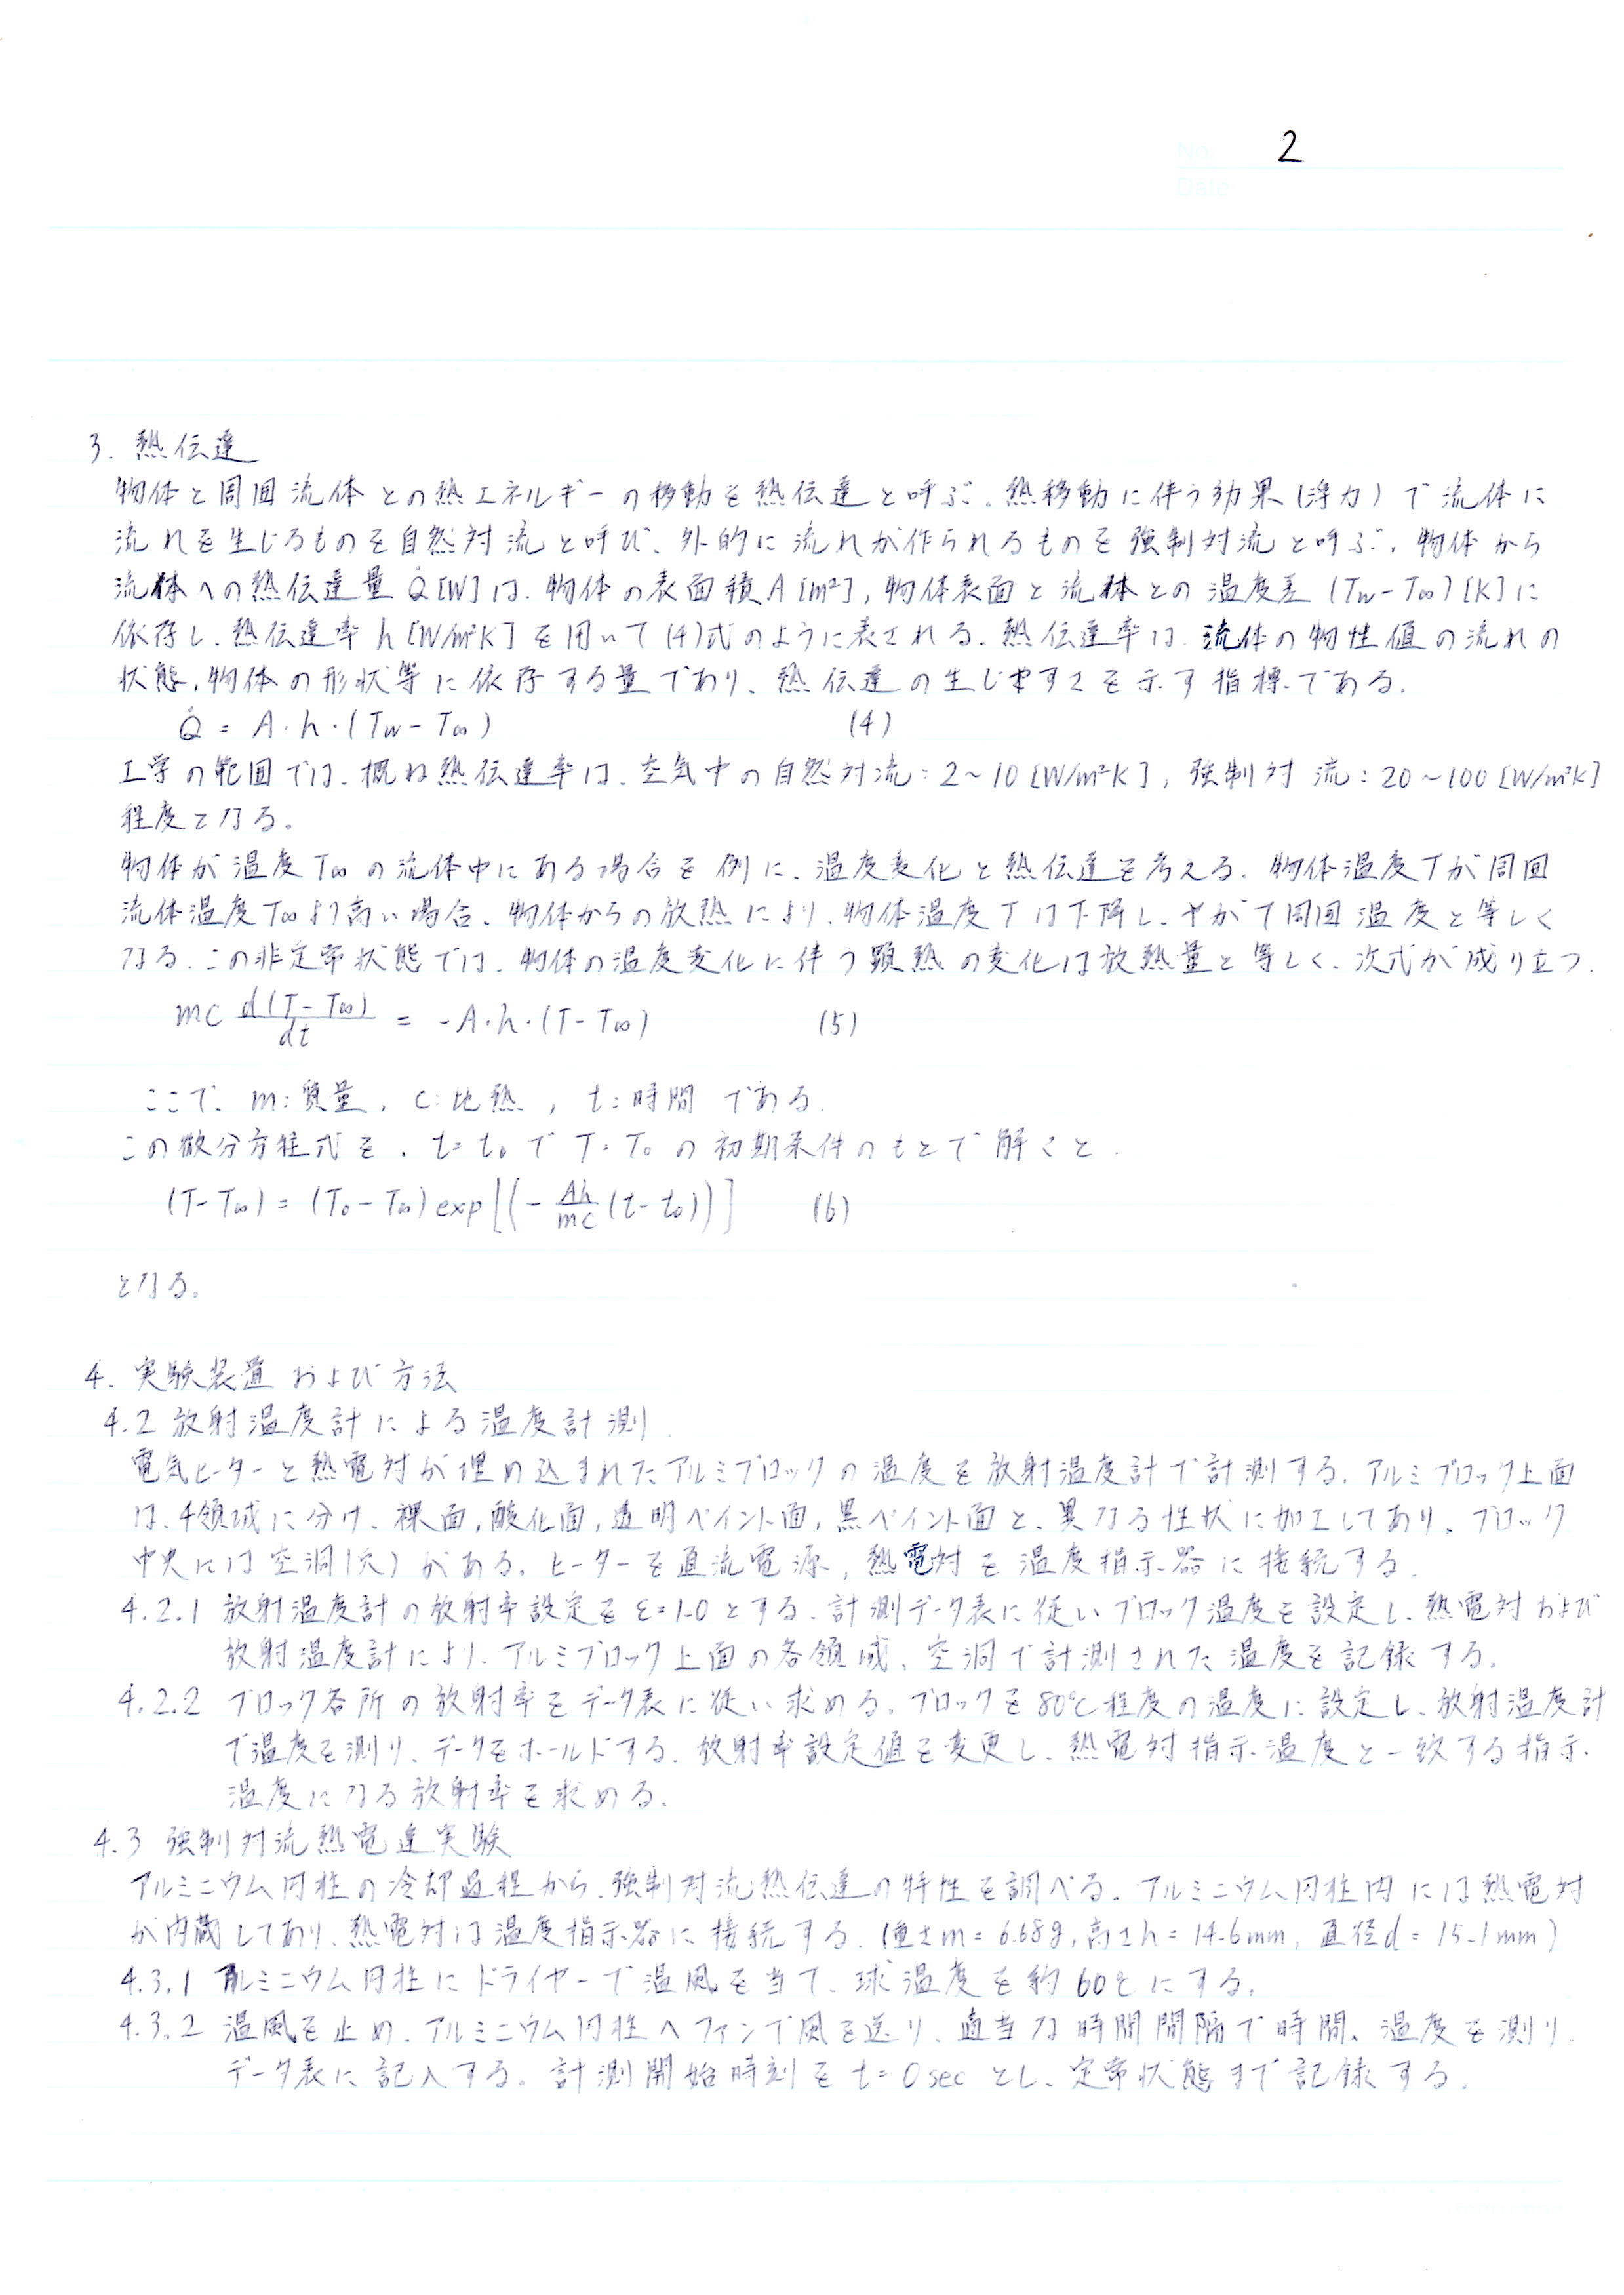 No. 2
Date
3. 熱伝達
物体と周囲流体との熱エネルギーの移動を熱伝達と呼ぶ。熱移動に伴う効果(浮力)で流体に
流れを生じるものを自然対流と呼び、外的に流れが作られるものを強制対流と呼ぶ。物体から
流体への熱伝達量 Q̇[W]は、物体の表面積A[m²], 物体表面と流体との温度差 (Tw-T∞)[K]に
依存し、熱伝達率 h[W/m²K]を用いて(4)式のように表される。熱伝達率は、流体の物性値の流れの
状態、物体の形状等に依存する量であり、熱伝達の生じやすさを示す指標である。
Q̇ = A・h・(Tw-T∞) (4)
工学の範囲では、概ね熱伝達率は、空気中の自然対流:2~10[W/m²K], 強制対流:20~100[W/m²K]
程度となる。
物体が温度T∞の流体中にある場合を例に、温度変化と熱伝達を考える。物体温度Tが周囲
流体温度T∞より高い場合、物体からの放熱により、物体温度Tは下降し、やがて周囲温度と等しく
なる。この非定常状態では、物体の温度変化に伴う顕熱の変化は放熱量と等しく、次式が成り立つ.
mc d(T-T∞)/dt = -A・h・(T-T∞) (5)
ここで、m:質量, c:比熱, t:時間 である.
この微分方程式を、t=t₀でT=T₀の初期条件のもとで解くと.
(T-T∞) = (T₀-T∞) exp[(-Ah/mc (t-t₀))] (6)
となる。
4. 実験装置および方法
4.2 放射温度計による温度計測
電気ヒーターと熱電対が埋め込まれたアルミブロックの温度を放射温度計で計測する。アルミブロック上面
は、4領域に分け、裸面, 酸化面, 透明ペイント面, 黒ペイント面と、異なる性状に加工してあり、ブロック
中央には空洞(穴)がある。ヒーターを直流電源, 熱電対を温度指示器に接続する.
4.2.1 放射温度計の放射率設定をε=1.0とする。計測データ表に従いブロック温度を設定し、熱電対および
放射温度計により、アルミブロック上面の各領域、空洞で計測された温度を記録する。
4.2.2 ブロック各所の放射率をデータ表に従い求める。ブロックを80℃程度の温度に設定し、放射温度計
で温度を測り、データをホールドする。放射率設定値を変更し、熱電対指示温度と一致する指示
温度になる放射率を求める。
4.3 強制対流熱電達実験
アルミニウム円柱の冷却過程から、強制対流熱伝達の特性を調べる。アルミニウム円柱内には熱電対
が内蔵してあり、熱電対は温度指示器に接続する。(重さm=6.68g, 高さh=14.6mm, 直径d=15.1mm)
4.3.1 アルミニウム円柱にドライヤーで温風を当て、球温度を約60℃にする。
4.3.2 温風を止め、アルミニウム円柱へファンで風を送り、適当な時間間隔で時間、温度を測り、
データ表に記入する。計測開始時刻をt=0secとし、定常状態まで記録する。